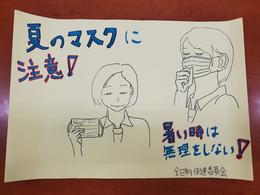 夏のマスクに
注意!
暑い時は
無理をしない!
全日制 保健委員会